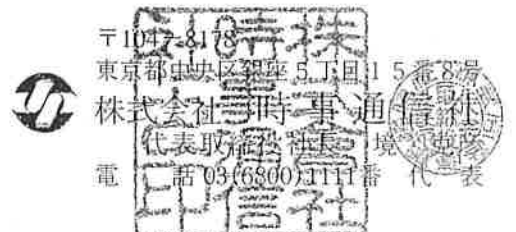 〒104-8178
東京都中央区銀座5丁目15番8号
株式会社 時事通信社
代表取締役社長 境
電 話 03(6800)1111番 代 表